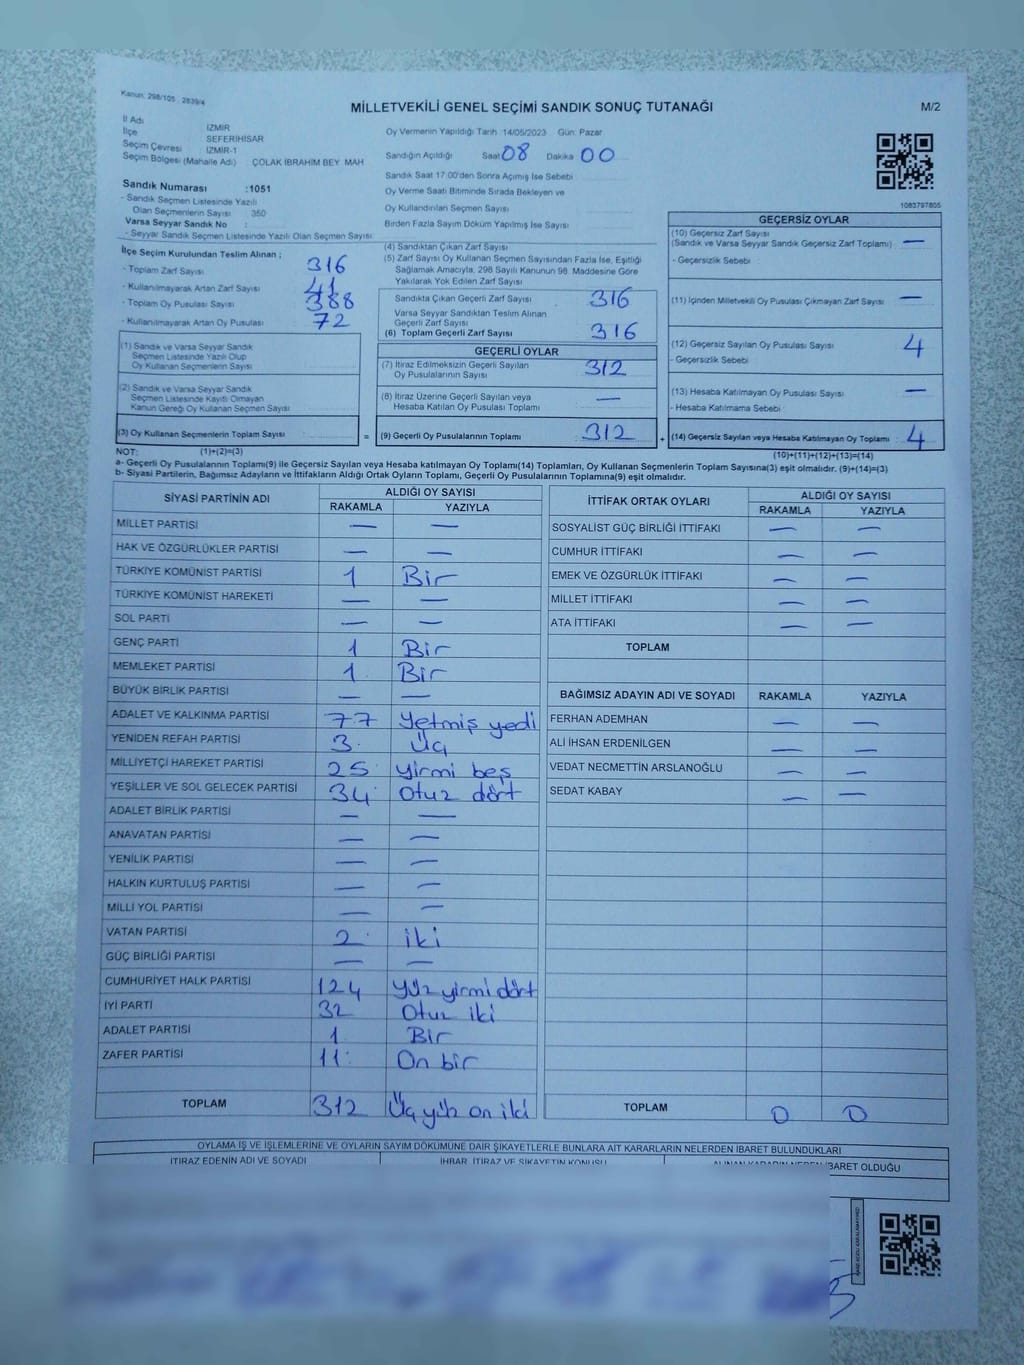 Kanun: 298/105 , 2839/4
MİLLETVEKİLİ GENEL SEÇİMİ SANDIK SONUÇ TUTANAĞI
M/2
İl Adı İZMİR
İlçe SEFERİHİSAR
Seçim Çevresi İZMİR-1
Seçim Bölgesi (Mahalle Adı) ÇOLAK İBRAHİM BEY MAH
Oy Vermenin Yapıldığı Tarih 14/05/2023 Gün: Pazar
Sandığın Açıldığı Saat 08 Dakika 00
Sandık Saat 17:00'den Sonra Açılmış İse Sebebi
Oy Verme Saati Bitiminde Sırada Bekleyen ve
Oy Kullandırılan Seçmen Sayısı
Birden Fazla Sayım Döküm Yapılmış İse Sayısı
1083797805
Sandık Numarası :1051
- Sandık Seçmen Listesinde Yazılı
Olan Seçmenlerin Sayısı 350
Varsa Seyyar Sandık No :
- Seyyar Sandık Seçmen Listesinde Yazılı Olan Seçmen Sayısı
İlçe Seçim Kurulundan Teslim Alınan ;
- Toplam Zarf Sayısı 316
- Kullanılmayarak Artan Zarf Sayısı 41
- Toplam Oy Pusulası Sayısı 388
- Kullanılmayarak Artan Oy Pusulası 72
(1) Sandık ve Varsa Seyyar Sandık
Seçmen Listesinde Yazılı Olup
Oy Kullanan Seçmenlerin Sayısı
(2) Sandık ve Varsa Seyyar Sandık
Seçmen Listesinde Kayıtlı Olmayan
Kanun Gereği Oy Kullanan Seçmen Sayısı
(3) Oy Kullanan Seçmenlerin Toplam Sayısı =
(4) Sandıktan Çıkan Zarf Sayısı
(5) Zarf Sayısı Oy Kullanan Seçmen Sayısından Fazla İse, Eşitliği
Sağlamak Amacıyla, 298 Sayılı Kanunun 98. Maddesine Göre
Yakılarak Yok Edilen Zarf Sayısı
Sandıkta Çıkan Geçerli Zarf Sayısı 316
Varsa Seyyar Sandıktan Teslim Alınan
Geçerli Zarf Sayısı
(6) Toplam Geçerli Zarf Sayısı 316
GEÇERLİ OYLAR
(7) İtiraz Edilmeksizin Geçerli Sayılan
Oy Pusulalarının Sayısı 312
(8) İtiraz Üzerine Geçerli Sayılan veya
Hesaba Katılan Oy Pusulası Toplamı —
(9) Geçerli Oy Pusulalarının Toplamı 312 +
GEÇERSİZ OYLAR
(10) Geçersiz Zarf Sayısı
(Sandık ve Varsa Seyyar Sandık Geçersiz Zarf Toplamı) —
- Geçersizlik Sebebi
(11) İçinden Milletvekili Oy Pusulası Çıkmayan Zarf Sayısı —
(12) Geçersiz Sayılan Oy Pusulası Sayısı 4
- Geçersizlik Sebebi
(13) Hesaba Katılmayan Oy Pusulası Sayısı —
- Hesaba Katılmama Sebebi
(14) Geçersiz Sayılan veya Hesaba Katılmayan Oy Toplamı 4
NOT: (1)+(2)=(3) (10)+(11)+(12)+(13)=(14)
a- Geçerli Oy Pusulalarının Toplamı(9) ile Geçersiz Sayılan veya Hesaba katılmayan Oy Toplamı(14) Toplamları, Oy Kullanan Seçmenlerin Toplam Sayısına(3) eşit olmalıdır. (9)+(14)=(3)
b- Siyasi Partilerin, Bağımsız Adayların ve İttifakların Aldığı Ortak Oyların Toplamı, Geçerli Oy Pusulalarının Toplamına(9) eşit olmalıdır.
SİYASİ PARTİNİN ADI ALDIĞI OY SAYISI
RAKAMLA YAZIYLA
MİLLET PARTİSİ — —
HAK VE ÖZGÜRLÜKLER PARTİSİ — —
TÜRKİYE KOMÜNİST PARTİSİ 1 Bir
TÜRKİYE KOMÜNİST HAREKETİ — —
SOL PARTİ — —
GENÇ PARTİ 1 Bir
MEMLEKET PARTİSİ 1 Bir
BÜYÜK BİRLİK PARTİSİ — —
ADALET VE KALKINMA PARTİSİ 77 Yetmiş yedi
YENİDEN REFAH PARTİSİ 3 Üç
MİLLİYETÇİ HAREKET PARTİSİ 25 yirmi beş
YEŞİLLER VE SOL GELECEK PARTİSİ 34 Otuz dört
ADALET BİRLİK PARTİSİ — —
ANAVATAN PARTİSİ — —
YENİLİK PARTİSİ — —
HALKIN KURTULUŞ PARTİSİ — —
MİLLİ YOL PARTİSİ — —
VATAN PARTİSİ 2 iki
GÜÇ BİRLİĞİ PARTİSİ — —
CUMHURİYET HALK PARTİSİ 124 Yüz yirmi dört
İYİ PARTİ 32 Otuz iki
ADALET PARTİSİ 1 Bir
ZAFER PARTİSİ 11 On bir
TOPLAM 312 Üç yüz on iki
İTTİFAK ORTAK OYLARI ALDIĞI OY SAYISI
RAKAMLA YAZIYLA
SOSYALİST GÜÇ BİRLİĞİ İTTİFAKI — —
CUMHUR İTTİFAKI — —
EMEK VE ÖZGÜRLÜK İTTİFAKI — —
MİLLET İTTİFAKI — —
ATA İTTİFAKI — —
TOPLAM
BAĞIMSIZ ADAYIN ADI VE SOYADI RAKAMLA YAZIYLA
FERHAN ADEMHAN — —
ALİ İHSAN ERDENİLGEN — —
VEDAT NECMETTİN ARSLANOĞLU — —
SEDAT KABAY — —
TOPLAM 0 0
OYLAMA İŞ VE İŞLEMLERİNE VE OYLARIN SAYIM DÖKÜMÜNE DAİR ŞİKAYETLERLE BUNLARA AİT KARARLARIN NELERDEN İBARET BULUNDUKLARI
İTİRAZ EDENİN ADI VE SOYADI İHBAR, İTİRAZ VE ŞİKAYETİN KONUSU ALINAN KARARIN NEDEN İBARET OLDUĞU